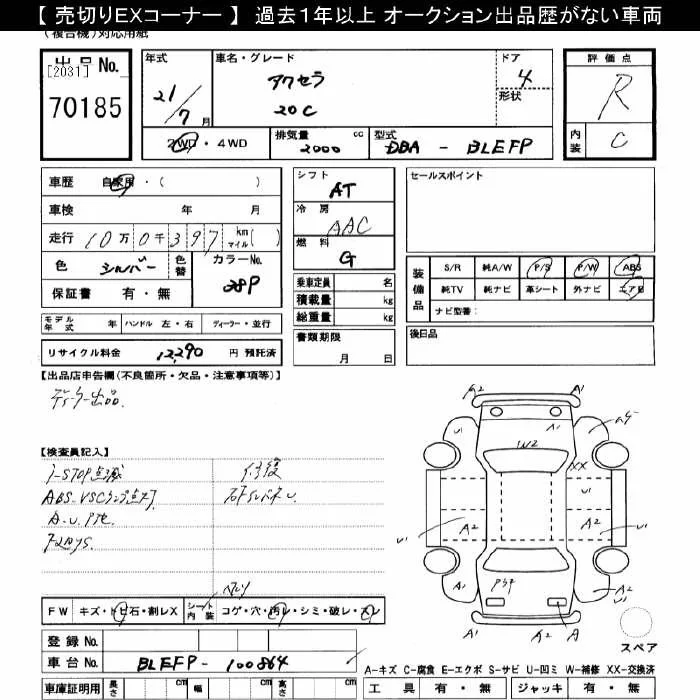 【 売切りEXコーナー 】 過去1年以上 オークション出品歴がない車両
(複合機)対応用紙
出品No.
[2031]
70185
年式
21/7月
車名・グレード
アクセラ
20C
ドア
4
形状
2WD・4WD
排気量 2000 cc
型式 DBA - BLEFP
評価点
R
内装 C
車歴 自家用・( )
車検 年 月
走行 10万0千397 km マイル( )
色 シルバー 色替
カラーNo. 28P
保証書 有・無
モデル年式 年 ハンドル 左・右 ディーラー・並行
リサイクル料金 12,290 円 預託済
シフト
AT
冷房
AAC
燃料
G
乗車定員 名
積載量 kg
総重量 kg
書類期限
月 日
セールスポイント
装備品
S/R 純A/W P/S P/W ABS
純TV 純ナビ 革シート 外ナビ エアB
ナビ型番:
後日品
【出品店申告欄(不良箇所・欠品・注意事項等)】
ディーラー出品
【検査員記入】
i-STOP点滅
ABS.VSCランプ点灯
A.U.P他
修復
FW キズ・トビ石・割レX シート内装 コゲ・穴・汚レ・シミ・破レ・スレ
登録No.
車台No. BLEFP-100864
車庫証明用 長さ cm 幅 cm 高さ cm
A2 A1
U1 A1
W2
XX
U1
A2 A2
U1 U1
A1 A2
U1
A1 A2 A
スペア
A-キズ C-腐食 E-エクボ S-サビ U-凹ミ W-補修 XX-交換済
工具 有・無 ジャッキ 有・無